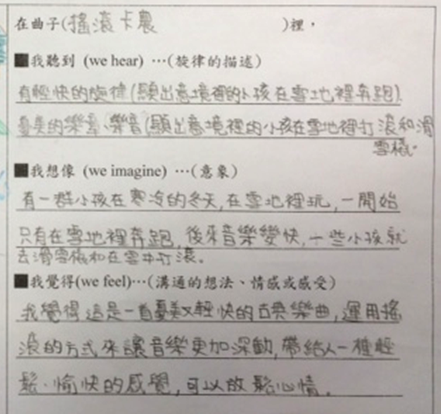 在曲子(搖滾卡農)裡，
■我聽到 (we hear) …(旋律的描述)
有輕快的旋律(顯出意境裡的小孩在雪地裡奔跑).
優美的樂章、樂音(顯出意境裡的小孩在雪地裡打滾和滑
雪橇。
■我想像 (we imagine) …(意象)
有一群小孩在寒冷的冬天,在雪地裡玩,一開始
只有在雪地裡奔跑,後來音樂變快,一些小孩就
去滑雪橇和在雪中打滾。
■我覺得(we feel)…(溝通的想法、情感或感受)
我覺得這是一首優美又輕快的古典樂曲,運用搖
滾的方式來讓音樂更加深動,帶給人一種輕
鬆、愉快的感覺,可以放鬆心情。